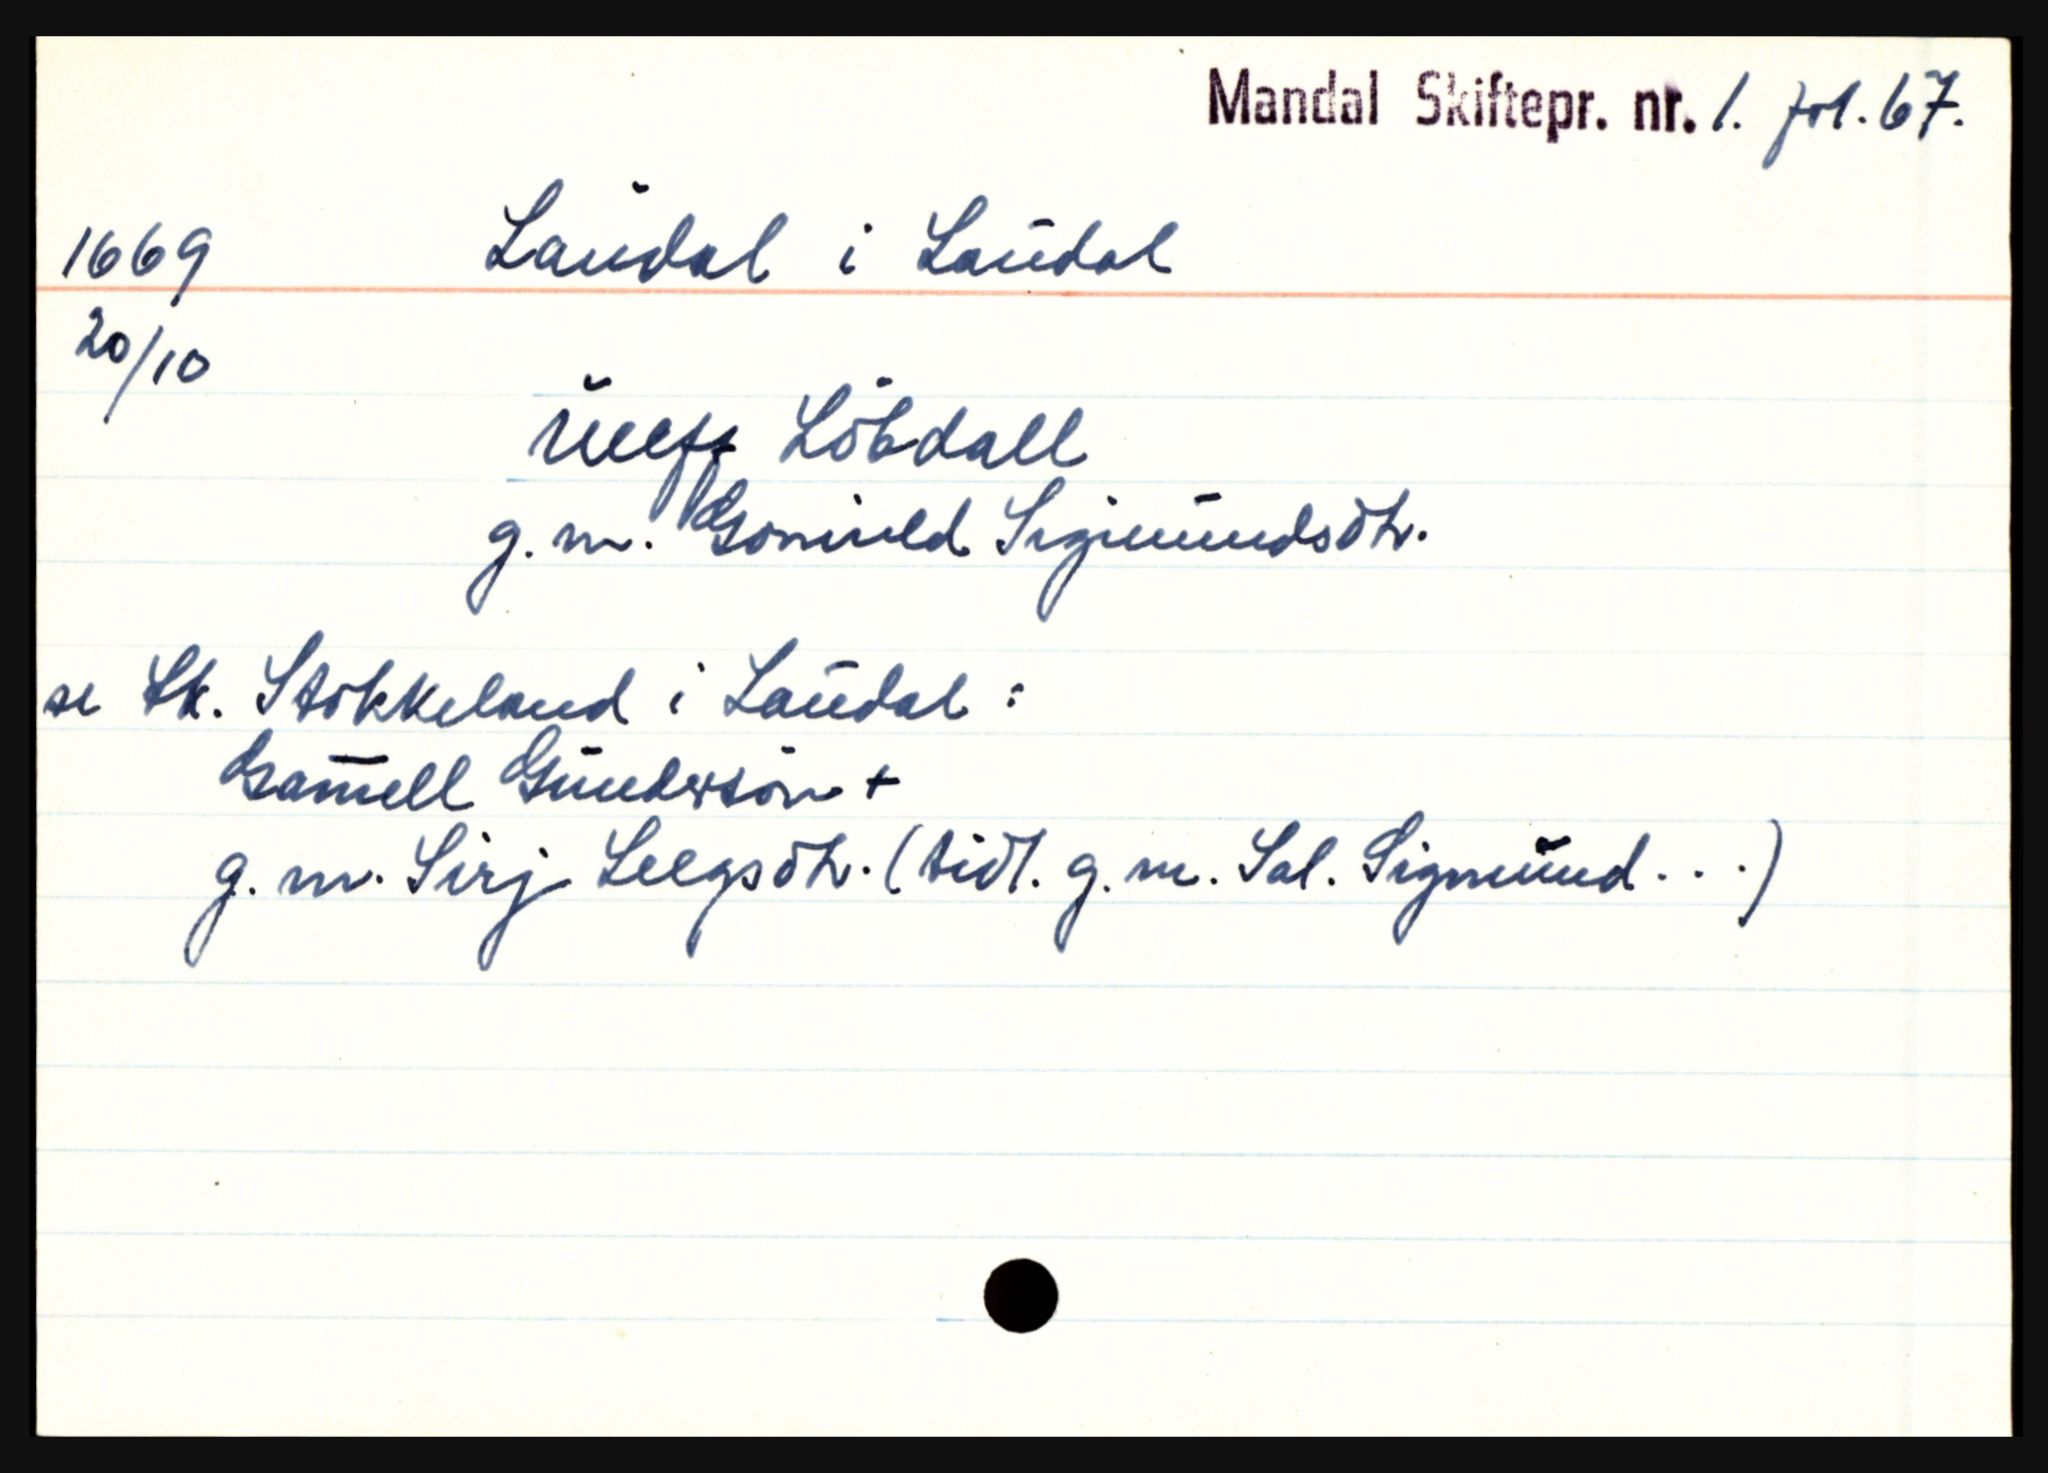 Mandal Skiftepr. nr. 1. fol. 67.
1669 Laudal i Laudal
20/10
Uleff Löbdall
g. m. Gonnild Sigmundsdtr.
se Sk. Stokkeland i Laudal:
Gamell Gundersön +
g. m. Sirj Leegsdtr. (tidl. g. m. Sal. Sigmund . . .)